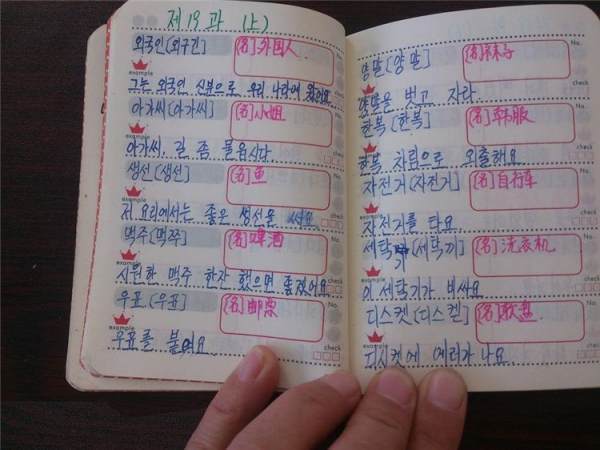 제19과 (上)
외국인 [외구긴] [名] 外国人 No.
example check
그는 외국인 신분으로 우리 나라에 왔어요.
아가씨 [아가씨] [名] 小姐
example check
아가씨, 길 좀 물읍시다.
생선 [생선] [名] 鱼 No.
example check
저 요리에서는 좋은 생선을 써요.
맥주 [맥쭈] [名] 啤酒 No.
example check
시원한 맥주 한잔 했으면 좋겠어요
우표 [우표] [名] 邮票 No.
example check
우표를 붙여요.
양말 [양말] [名] 袜子 No.
example check
양말을 벗고 자라.
한복 [한복] [名] 韩服 No.
example check
한복 차림으로 외출해요.
자전거 [자전거] [名] 自行车 No.
example check
자전거를 타요
세탁기 [세탁끼] [名] 洗衣机 No.
example check
이 세탁기가 비싸요
디스켓 [디스켇] [名] 软盘 No.
example check
디시켓에 에러가 나요.